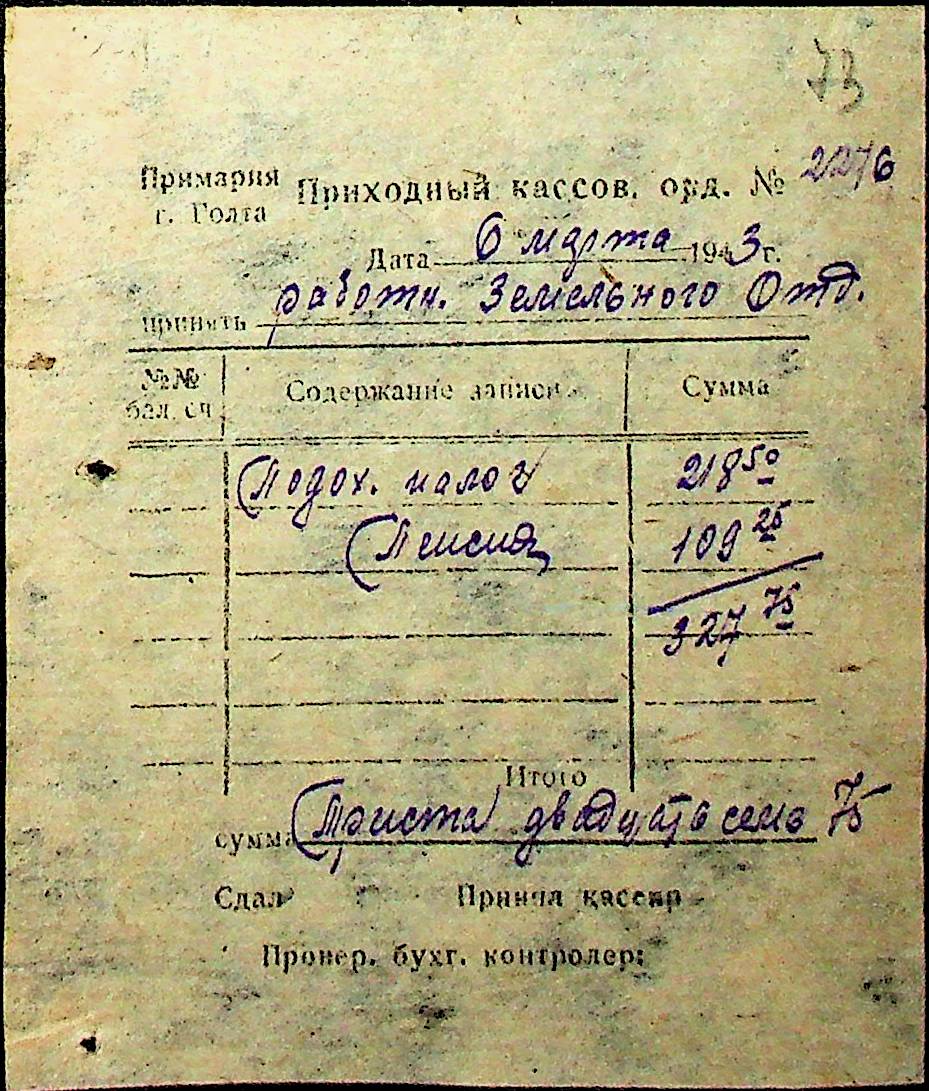 73
Примария Приходный кассов. орд. № 2276
г. Голта
Дата 6 марта 1943 г.
принять работн. Земельного Отд.
№№ бал. сч. Содержание записи Сумма
Подох. налог 218 50
Пенсия 109 25
327 75
Итого
сумма Триста двадцать семь 75
Сдал Принял кассир
Провер. бухг. контролер: